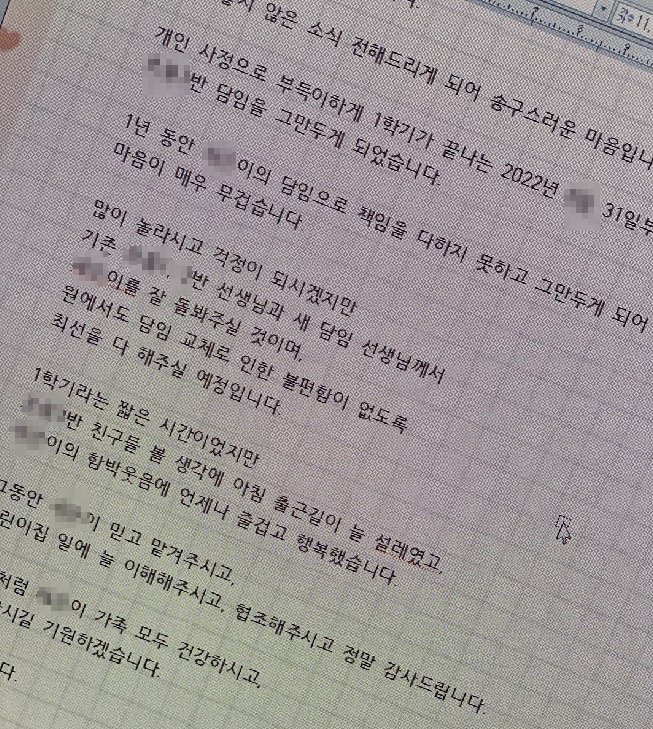 않은 소식 전해드리게 되어 송구스러운 마음입니
개인 사정으로 부득이하게 1학기가 끝나는 2022년 31일부
반 담임을 그만두게 되었습니다.
1년 동안 이의 담임으로 책임을 다하지 못하고 그만두게 되어
마음이 매우 무겁습니다
많이 놀라시고 걱정이 되시겠지만
기존 , 반 선생님과 새 담임 선생님께서
이를 잘 돌봐주실 것이며,
원에서도 담임 교체로 인한 불편함이 없도록
최선을 다 해주실 예정입니다.
1학기라는 짧은 시간이었지만
반 친구들 볼 생각에 아침 출근길이 늘 설레였고,
이의 함박웃음에 언제나 즐겁고 행복했습니다.
그동안 이 믿고 맡겨주시고,
린이집 일에 늘 이해해주시고, 협조해주시고 정말 감사드립니다.
처럼 이 가족 모두 건강하시고,
시길 기원하겠습니다.
다.
11.